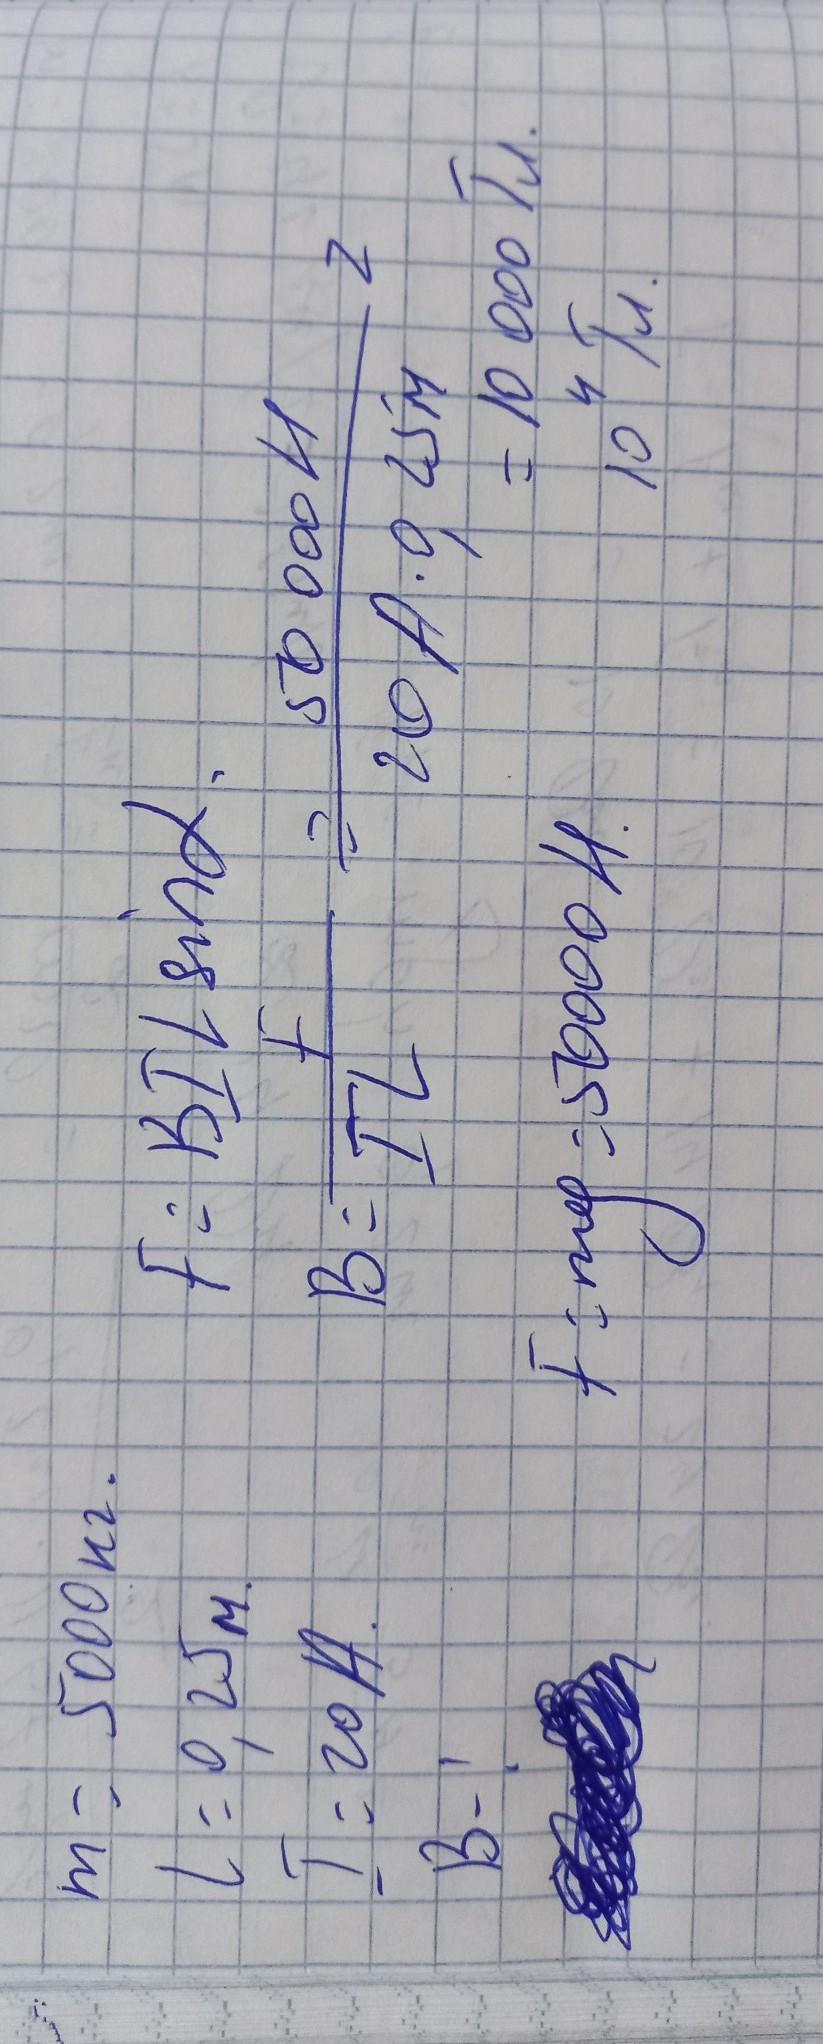 m = 5000кг.
L = 0,25м.
I = 20А.
B - ?
F = BIL sinα.
B = F / IL = 50 000 Н / 20 А · 0,25м =
= 10 000 Тл.
10^4 Тл.
F = mg = 50000 Н.